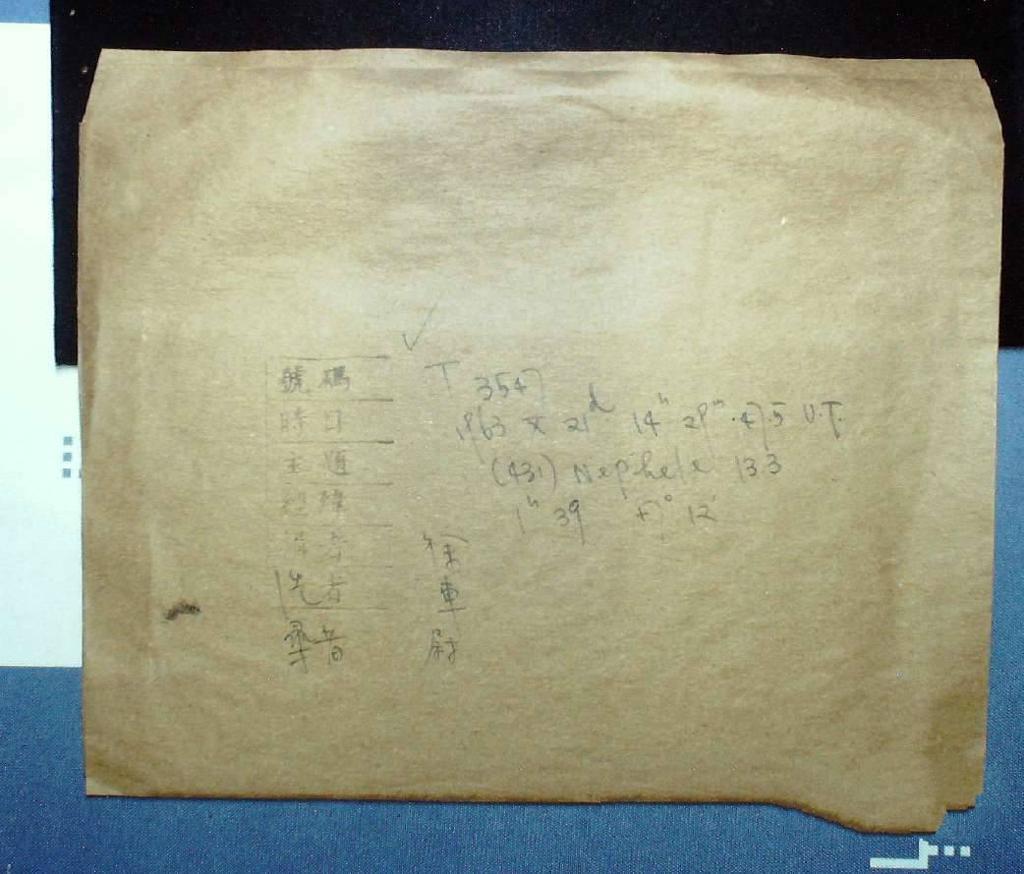 號碼 T 3547
時日 1963 X 21ᵈ 14ʰ 29ᵐ.475 U.T.
主題 (431) Nephele 133
經緯 1ʰ 39 +7° 12'
徐
洗者 車
尋者 尉